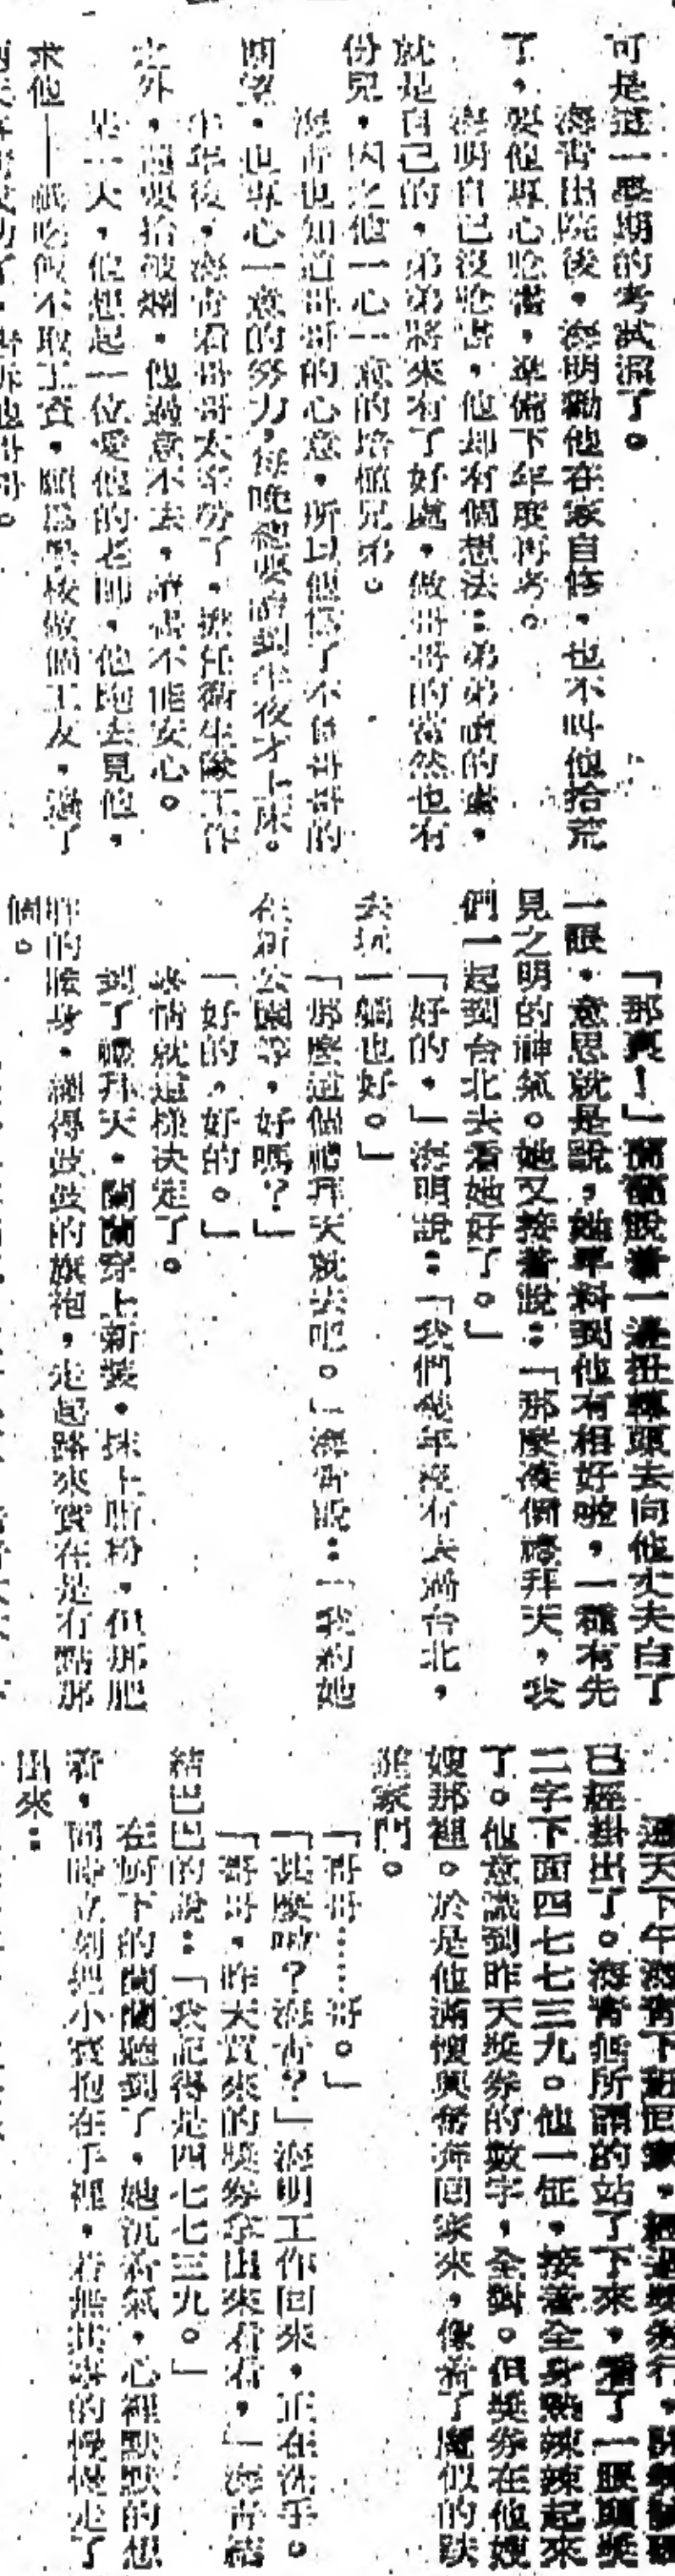 可是這一學期的考試濕了。
海青出院後，海明勸他在家自修，也不叫他拾荒
了，要他專心唸書，準備下年度再考。
海明自己沒唸書，他却有個想法：弟弟讀的書，
就是自己的，弟弟將來有了好處，做哥哥的當然也有
份兒，因之他一心一意的培植兄弟。
海青也知道哥哥的心意，所以他為了不負哥哥的
期望，也專心一意的努力，每晚總要讀到半夜才上床。
半年後，海青看哥哥太辛勞了，擔任衛生隊工作
之外，還要拾破爛，他過意不去，讀書不能安心。
某一天，他想起一位愛他的老師，他跑去見他，
求他——祇吃飯不取工資，願為學校做個工友，過了
「那真！」蘭蘭說着一邊扭轉頭去向他丈夫白了
一眼，意思就是說，她早料到他有相好啦，一種有先
見之明的神氣。她又接着說：「那麼後個禮拜天，我
們一起到台北去看她好了。」
「好的，」海明說：「我們幾年沒有去過台北，
去玩一躺也好。」
「那麼這個禮拜天就去吧。」海青說：「我約她
在新公園等，好嗎？」
「好的，好的。」
事情就這樣决定了。
到了禮拜天，蘭蘭穿上新裝，抹上脂粉，但那肥
胖的腰身，綳得歧歧的旗袍，走起路來實在是有點那
個。
過天下午海青下班回家，經過獎劵行，
已經掛出了。海青無所謂的站了下來，看了一眼頭獎
二字下面四七七三九。他一怔，接着全身熱辣辣起來
了。他意識到昨天獎劵的數字，全對。但獎劵在他嫂
嫂那裡。於是他滿懷興奮奔回家來，像着了魔似的跌
進家門。
「哥哥……哥。」
「甚麼呀？海青？」海明工作回來，正在洗手。
「哥哥，昨天買來的獎劵拿出來看看，」海青結
結巴巴的說：「我記得是四七七三九。」
在廚下的蘭蘭聽到了，她沉着氣，心裡默默的想
着，同時立刻把小寶抱在手裡，若無其事的慢慢走了
出來：